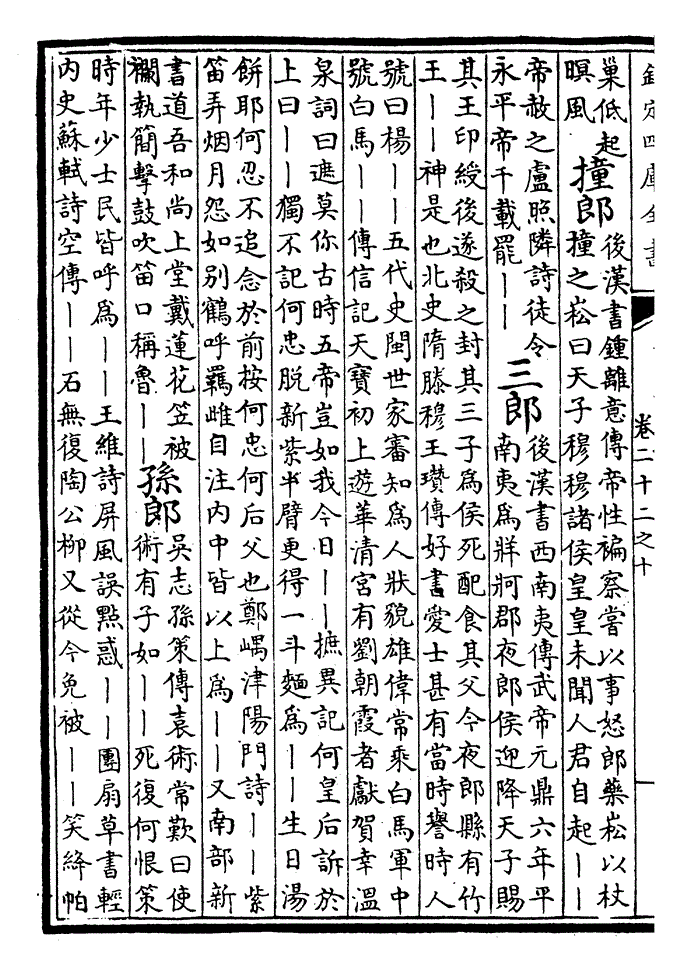 欽定四庫全書
卷二十二之十
巢低起
暝風
撞郎
後漢書鍾離意傳帝性褊察嘗以事怒郎藥崧以杖
撞之崧曰天子穆穆諸侯皇皇未聞人君自起丨丨
帝赦之盧照隣詩徒令
永平帝千載罷丨丨
三郎
後漢書西南夷傳武帝元鼎六年平
南夷為牂牁郡夜郎侯迎降天子賜
其王印綬後遂殺之封其三子為侯死配食其父今夜郎縣有竹
王丨丨神是也北史隋滕穆王瓚傳好書愛士甚有當時譽時人
號曰楊丨丨五代史閩世家審知為人狀貌雄偉常乘白馬軍中
號白馬丨丨傳信記天寶初上遊華清宮有劉朝霞者獻賀幸溫
泉詞曰遮莫你古時五帝豈如我今日丨丨摭異記何皇后訴於
上曰丨丨獨不記何忠脫新紫半臂更得一斗麵為丨丨生日湯
餅耶何忍不追念於前按何忠何后父也鄭嵎津陽門詩丨丨紫
笛弄烟月怨如別鶴呼羈雌自注内中皆以上為丨丨又南部新
書道吾和尚上堂戴蓮花笠被
襴執簡擊鼓吹笛口稱魯丨丨
孫郎
吳志孫策傳袁術常歎曰使
術有子如丨丨死復何恨策
時年少士民皆呼為丨丨王維詩屏風誤點惑丨丨團扇草書輕
内史蘇軾詩空傳丨丨石無復陶公柳又從今免被丨丨笑絳帕